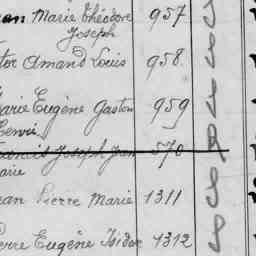 an Marie Théodore 957
Joseph
tor Amand Louis 958
arie Eugène Gaston 959
Henri
Francis Joseph Jean 570
arie
ean Pierre Marie 1311
erre Eugène Isidor 1312